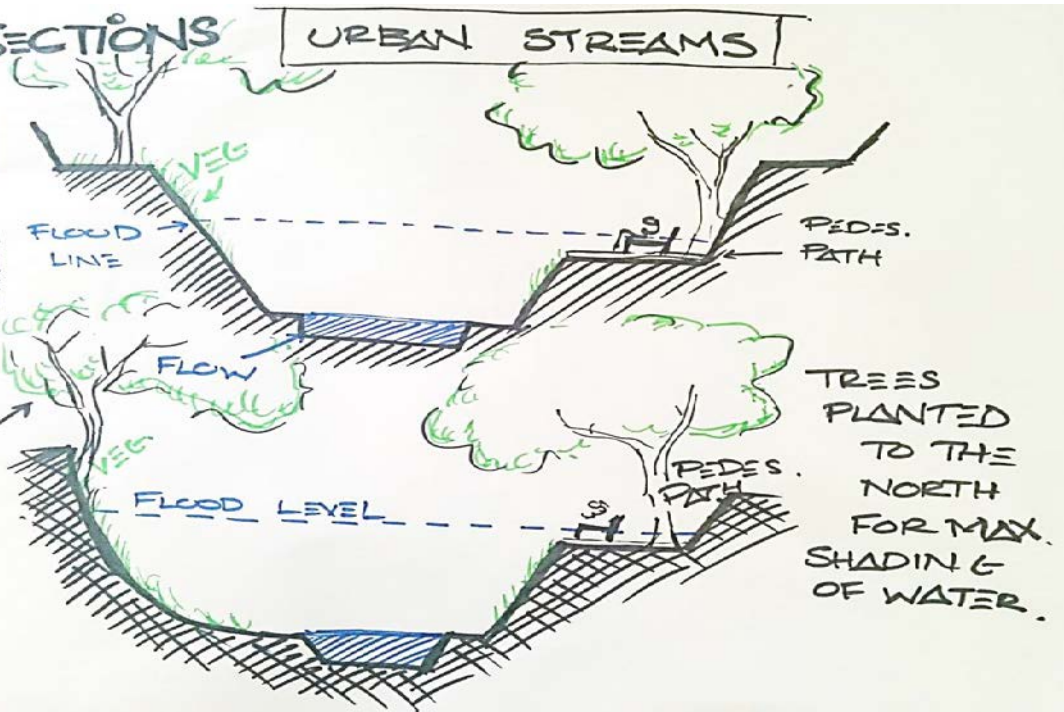 SECTIONS
URBAN STREAMS
VEG
FLOOD
LINE
PEDES.
PATH
FLOW
VEG
FLOOD LEVEL
PEDES.
PATH
TREES
PLANTED
TO THE
NORTH
FOR MAX.
SHADING
OF WATER.